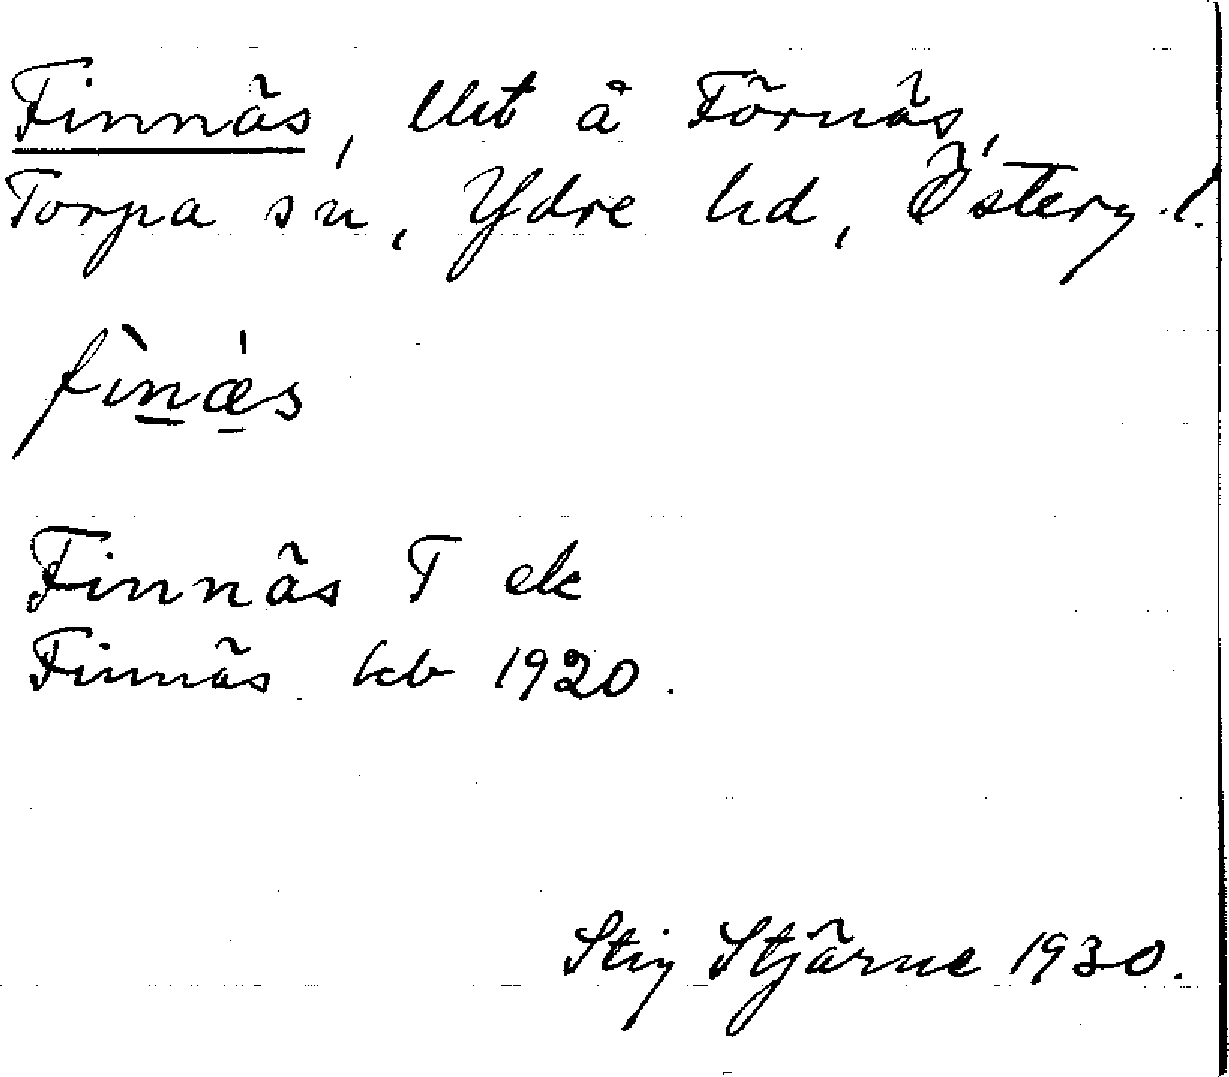 Finnäs, lht å Förnäs,
Torpa sn, Ydre hd, Österg. l.
fìnæ̀s
Finnäs T ek
Finnäs kb 1920.
Stig Stjärne 1930.